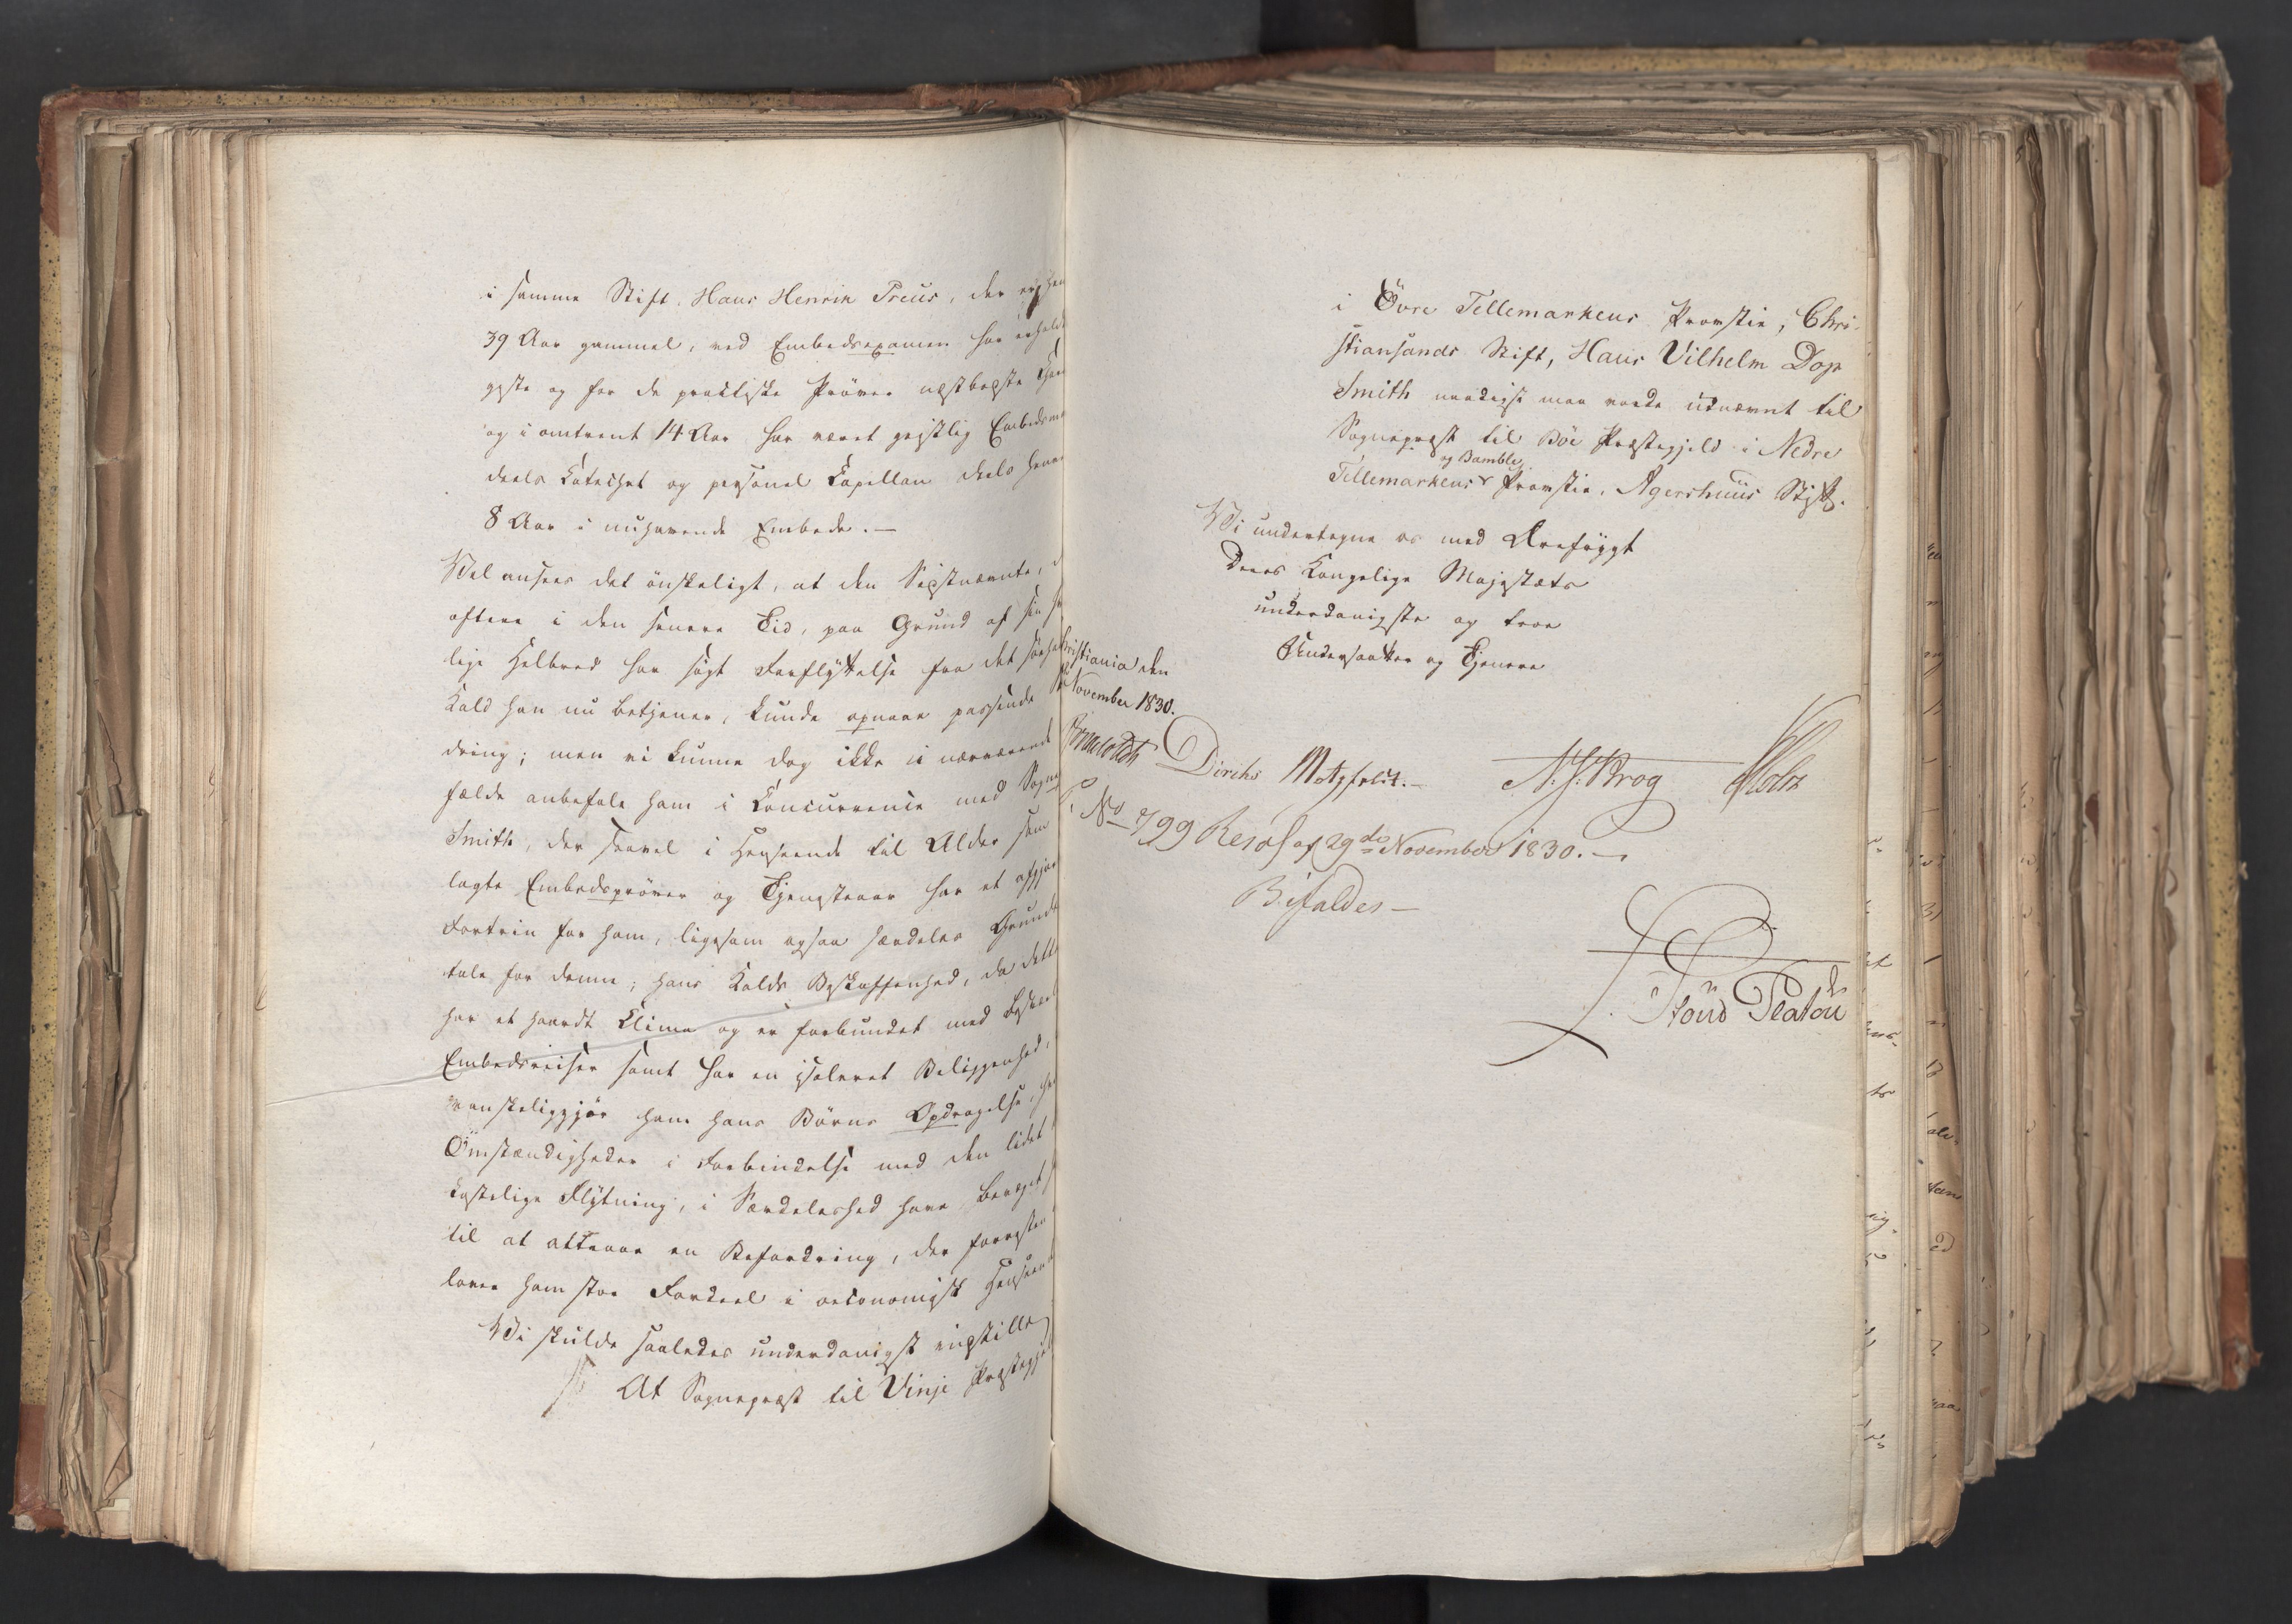 i samme Stift, Hans Henrik Preus, der er
39 Aar gammel, ved Embedsexamen har erholdt
og for de practiske Prøver næstbeste
og i omtrent 14 Aar har været geistlig Embedsma
deels Catechet og personel Capellan deels
8 Aar i nuhavende Embede. —
Vel ansees det ønskeligt, at den Sidstnævnte,
oftere i den senere Tid, paa Grund af sin
lige Helbred har søgt Forflyttelse fra det
Kald han nu betjener, kunde opnaae passende
dring; men vi kunne dog ikke i nærværende
fælde anbefale ham i Concurrence med Sogne
Smith, der saavel i Henseende til Alder som
lagte Embedsprøver og Tjenesteaar har et afgjør
Fortrin for ham, ligesom ogsaa særdeles Grunde
tale for denne; hans Kalds Beskaffenhed, da dette
har et haardt Clima og er forbundet med besvær
Embedsreiser samt har en isoleret Beliggenhed,
vanskeliggjør ham hans Børns Opdragelse,
Omstændigheder i Forbindelse med den lidet
kostelige Flytning, i Særdeleshed have bevæget
til at attraae en Befordring, der forresten
lover ham stor Fordeel i oeconomisk Henseende
Vi skulde saaledes underdanigst indstille
At Sognepræst til Vinje Præstegje
i Övre Tellemarkens Provstie, Chri-
stiansands Stift, Hans Vilhelm Dop
Smith naadigst maa vorde udnævnt til
Sognepræst til Böe Præstegjeld i Nedre
og Bamble
Tellemarkens Provstie, Agershuus Stift.
Vi undertegne os med Ærefrygt
Deres Kongelige Majestæts
underdanigste og troe
Undersaatter og Tjenere
hristiania den
November 1830.
Diriks Motzfeldt. N. J. Krog Holst
No 799 Resol af 29de November 1830.
Bifaldes —
Stoud Platou